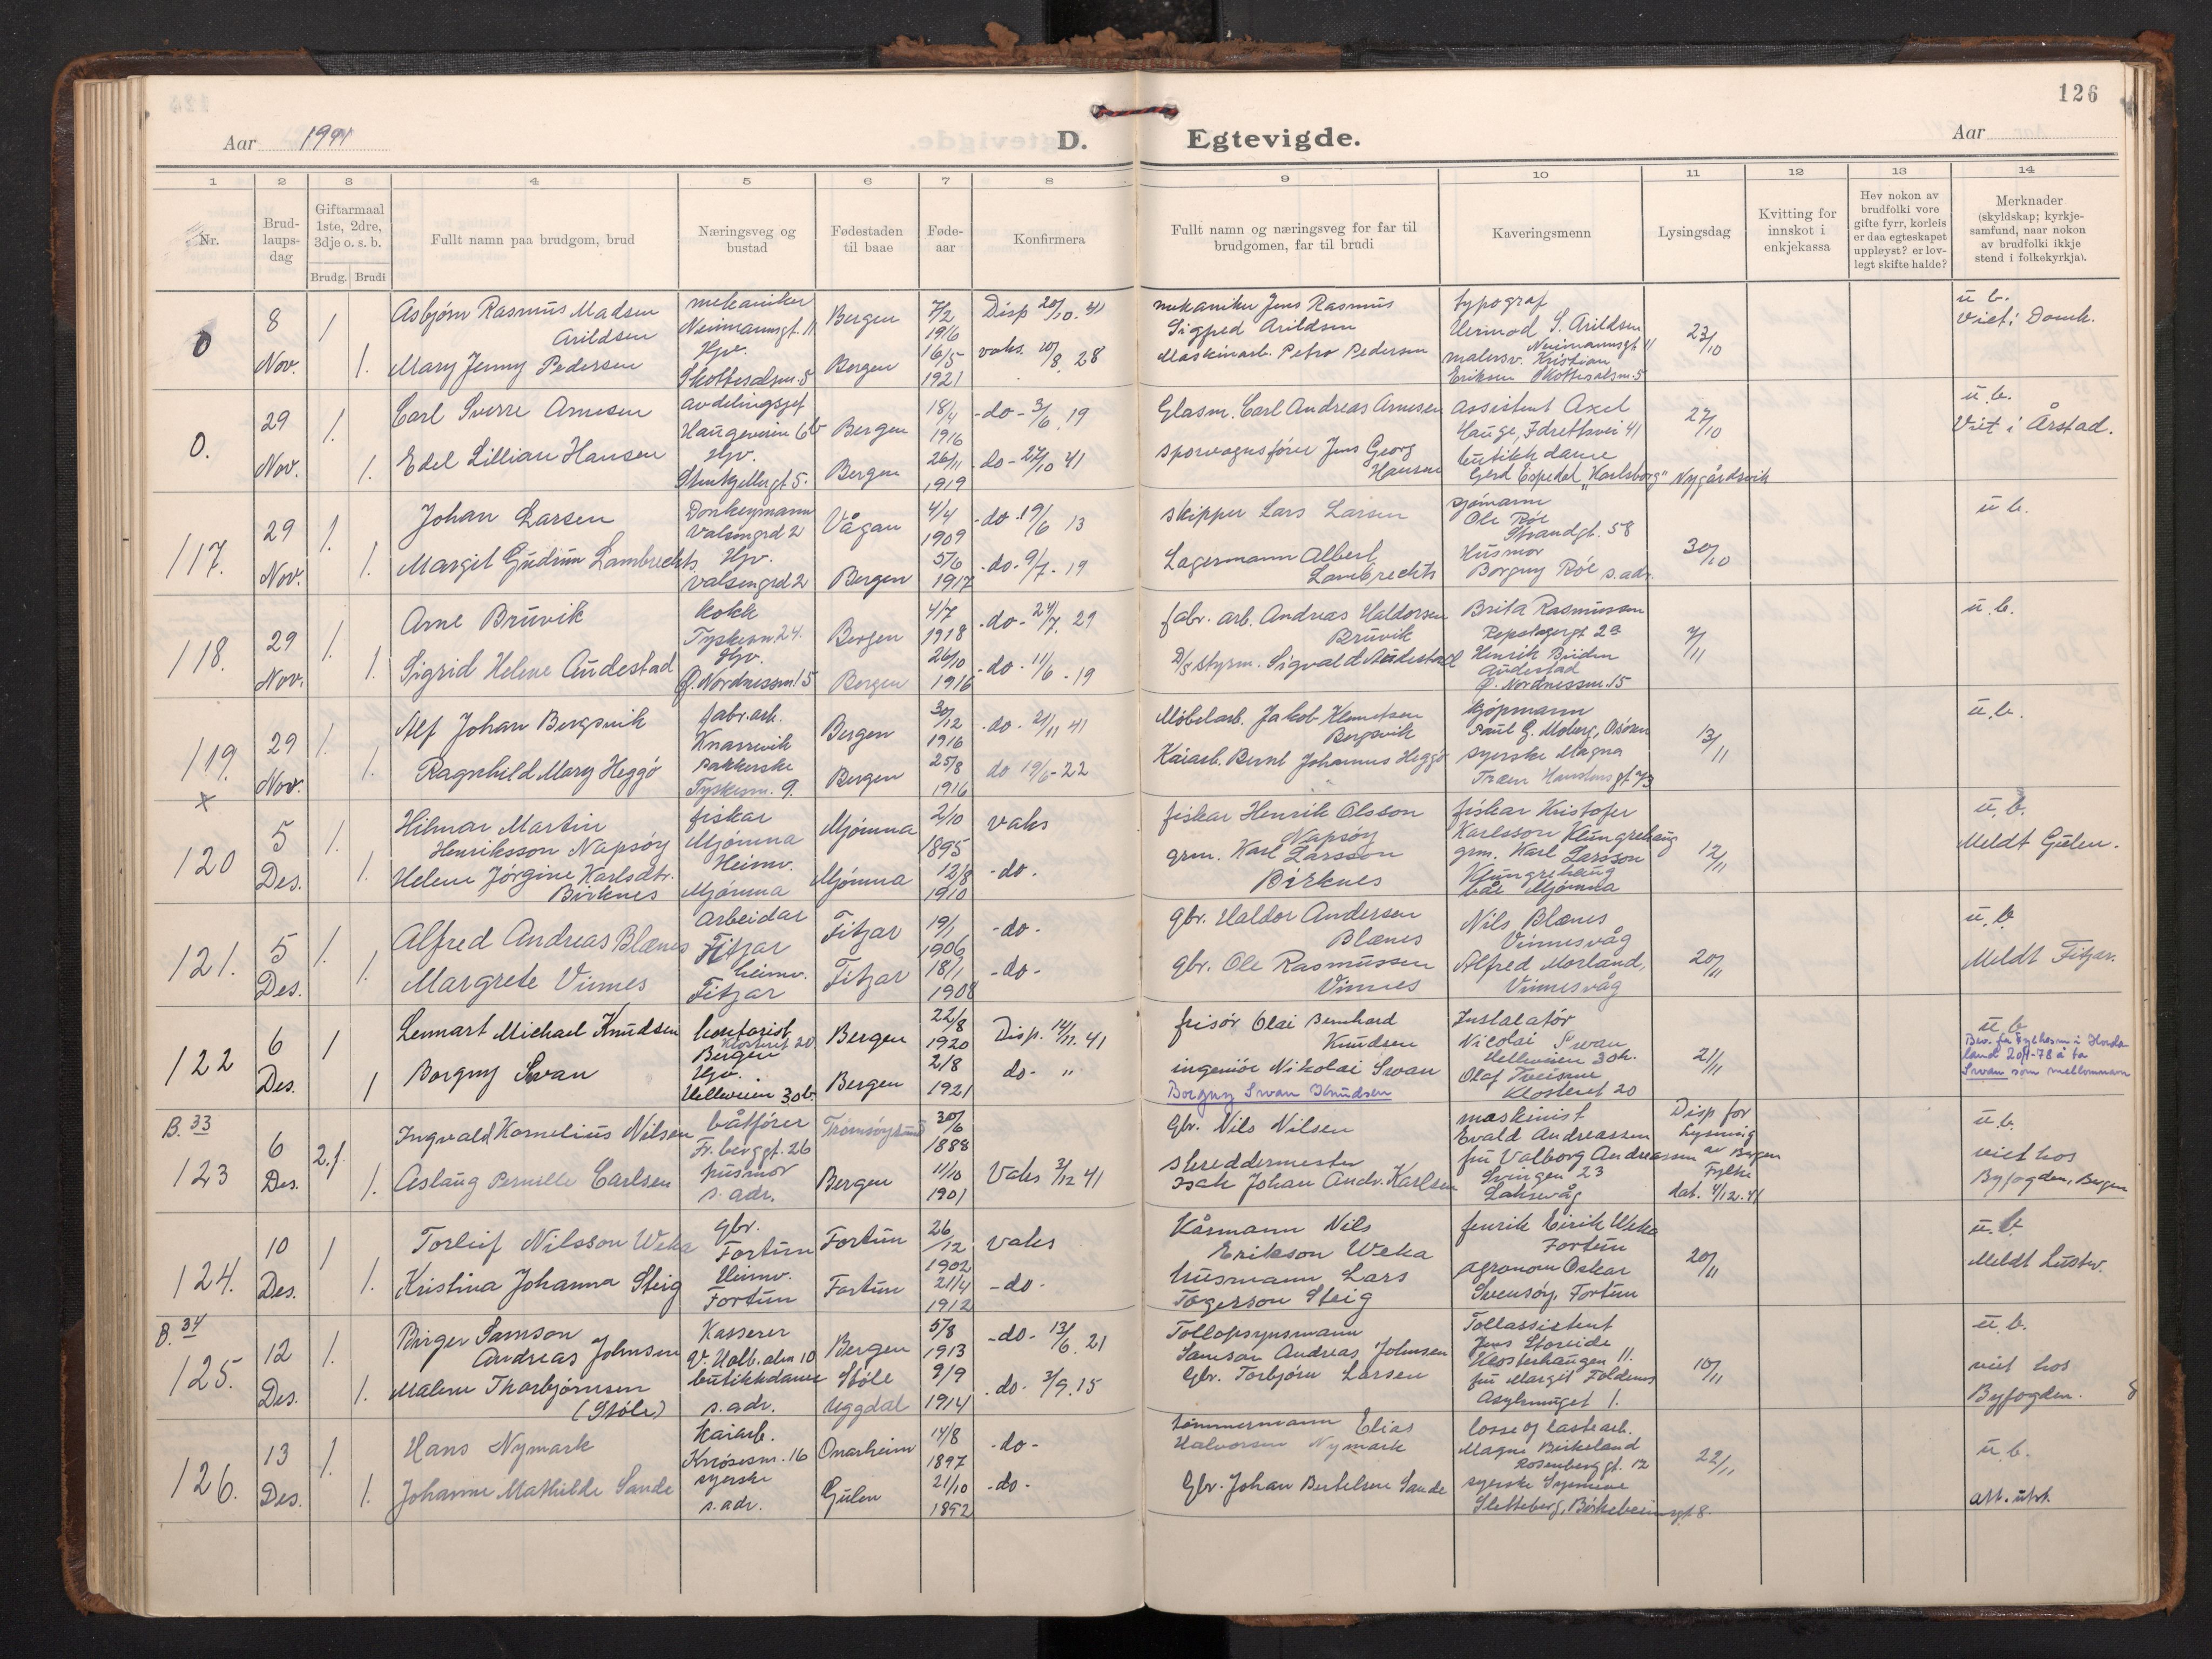 126
Aar 1941
D.
Egtevigde.
Aar
1 2 3 4 5 6 7 8 9 10 11 12 13 14
Nr.
Brud-
laups-
dag
Giftarmaal
1ste, 2dre,
3dje o. s. b.
Brudg. Brudi
Fullt namn paa brudgom, brud
Næringsveg og
bustad
Fødestaden
til baae
Føde-
aar
Konfirmera
Fullt namn og næringsveg for far til
brudgomen, far til brudi
Kaveringsmenn
Lysingsdag
Kvitting for
innskot i
enkjekassa
Hev nokon av
brudfolki vore
gifte fyrr, korleis
er daa egteskapet
uppløyst? er lov-
legt skifte halde?
Merknader
(skyldskap; kyrkje-
samfund, naar nokon
av brudfolki ikkje
stend i folkekyrkja).
0
8
Nov.
1
1.
Asbjørn Rasmus Madsen
Arildsen
Mary Jenny Pedersen
mekaniker
Neumannsgt. 11
Hjv.
Skottesalm. 5
Bergen
Bergen
7/2
1916
16/5
1921
Disp 20/10. 41
vaks. 20/8. 28
mekaniker Jens Rasmus
Sigfred Arildsen
Maskinarb. Petro Pedersen
typograf
Vermod S. Arildsen
Neumannsgt 11
malersv. Kristian
Eriksen Skottesalm. 5
23/10
u. b.
Viet i Domk.
0.
29
Nov.
1.
1.
Carl Sverre Arnesen
Edel Lillian Hansen
avdelingsjef
Haugeveien 6b
Hjv.
Stenkjellergt 5.
Bergen
Bergen
18/4
1916
26/11
1919
-do- 3/6. 19
-do- 27/10 41
Glasm. Carl Andreas Arnesen
sporvognsfører Jens Georg
Hansen
Assistent Axel
Hauge, Idrettsvei 41
butikkdame
Gerd Espedal "Karlsborg" Nygårdsvik
27/10
u. b.
Viet i Årstad.
117.
29
Nov.
1.
1.
Johan Larsen
Margit Gudrun Lambrechts
Donkeymann
Valsmgrd 2
Hjv.
Valsmgrd 2
Vågan
Bergen
4/4
1909
5/6
1917
-do. 19/6 13
-do. 9/7. 19
Skipper Lars Larsen
Lagermann Albert
Lambrechts
sjömann
Ole Röe
Strandgt. 58
Husmor
Borgny Röe s. adr.
30/10
u. b.
118.
29
Nov.
1.
1.
Arne Bruvik
Sigrid Helene Audestad
kokk
Tyskesm. 24.
Hjv.
Ø. Nordnessm 15
Bergen
Bergen
4/7
1918
26/10
1916
-do- 24/7. 29
-do. 11/6. 19
fabr. arb. Andreas Haldorsen
Bruvik
D/S styrm. Sigvald Audestad
Brita Rasmussen
Repslagergt 2a
Henrik
Audestad
Ø. Nordnessm. 15
7/11
u. b.
119.
×
29
Nov.
1.
1.
Alf Johan Bergsvik
Ragnhild Mary Heggö
fabr. arb.
Knarrevik
pakkerske
Tyskesm. 9.
Bergen
Bergen
30/12
1916
25/8
1916
-do. 21/11 41
do 19/6-22
Möbelarb. Jakob Klemetsen
Bergsvik
Kaiarb. Bernt Johannes Heggö
kjøpmann
Paul G. Moberg, Osøren
syerske Magna
13/11
u. b.
120
5
Des.
1.
1.
Hilmar Martin
Henriksson Napsöy
Helene Jörgine Karlsdtr.
Birknes
fiskar
Mjömna
Heimv.
Mjömna
Mjömna
Mjömna
2/10
1895
12/8
1910
vaks
-do.
fiskar Henrik Olsson
Napsöy
grm. Karl Larsson
Birknes
fiskar Kristofer
Karlsson Klungrehaug
grm. Karl Larsson
Klungrehaug
båe Mjömna
12/11
u. b.
Meldt Gulen.
121.
5
Des.
1.
1.
Alfred Andreas Blænes
Margrete Vinnes
Arbeidar
Fitjar
heimv.
Fitjar
Fitjar
Fitjar
19/1
1906
18/1
1908
-do-
-do-
gbr. Haldor Andersen
Blænes
gbr. Ole Rasmussen
Vinnes
Nils Blænes
Vinnesvåg
Alfred Morland,
Vinnesvåg
20/11
u. b.
Meldt Fitjar.
122
6
Des.
1
1
Lennart Michael Knudsen
Borgny Svan
kontorist
Klosteret 20
Bergen
Hjv.
Helleveien 30b
Bergen
Bergen
22/8
1920
2/8
1921
Disp. 14/11. 41
do- "
frisør Olai Bernhard
Knudsen
ingeniör Nikolai Svan
Borgny Svan Knudsen
Instalatör
Nicolai Svan
Helleveien 30b.
Olaf Tveisme
Klosteret 20
21/11
u. b.
Bev. fra Fylkesm i Horda
land 20/1-78 å ta
Svan som mellomnavn
B. 33
123
6
Des.
2. f.
1.
Ingvald Kornelius Nilsen
Aslaug Pernille Carlsen
båtförer
Fr. berggt. 26
husmor
s. adr.
Tromsöysund
Bergen
30/6
1888
11/10
1901
Vaks 3/12 41
Gbr. Nils Nilsen
skreddermester
Isak Johan Andr. Karlsen
maskinist
Evald Andreassen
fru Valborg Andreassen
Svingen 23
Laksevåg
Disp for
Lysning
av Bergen
Fylke
dat. 4/12. 41
u. b.
viet hos
Byfogden, Bergen
124.
10
Des.
1
1.
Torleif Nilsson Weka
Kristina Johanna Steig
gbr.
Fortun
Heimv.
Fortun
Fortun
Fortun
26/12
1902
21/4
1912
vaks
-do-
Kårmann Nils
Erikson Weka
husmann Lars
Togerson Steig
fenrik Eirik Weka
Fortun
agronom Oskar
Svensöy, Fortun
20/11
u. b.
Meldt Luster.
B. 34
125.
12
Des.
1.
1.
Birger Samson
Andreas Johnsen
Malene Thorbjørnsen
(Støle)
Kasserer
V. Holb. alm 10
butikkdame
s. adr.
Bergen
Støle
Uggdal
5/8
1913
9/9
1914
-do- 13/6. 21
-do- 3/9. 15
Tollopsynsmann
Samson Andreas Johnsen
Gbr. Torbjørn Larsen
Tollassistent
Jens Storeide
Klosterhaugen 11.
fru Margit Foldenes
Asylsmuget 1.
10/11
u. b.
viet hos
Byfogden.
8
126.
13
Des.
1.
1.
Hans Nymark
Johanne Mathilde Sande
Kaiarb.
Knösesm. 16
syerske
s. adr.
Onarheim
Gulen
14/8
1897
21/10
1892
-do-
-do-
tømmermann Elias
Halvorsen Nymark
Gbr. Johan Bertelsen Sande
losse og lastearb.
Magne Birkeland
Rosenberggt. 12
syerske
Sletteberg, Birkebeinergt 8.
22/11
u. b.
att. utst.